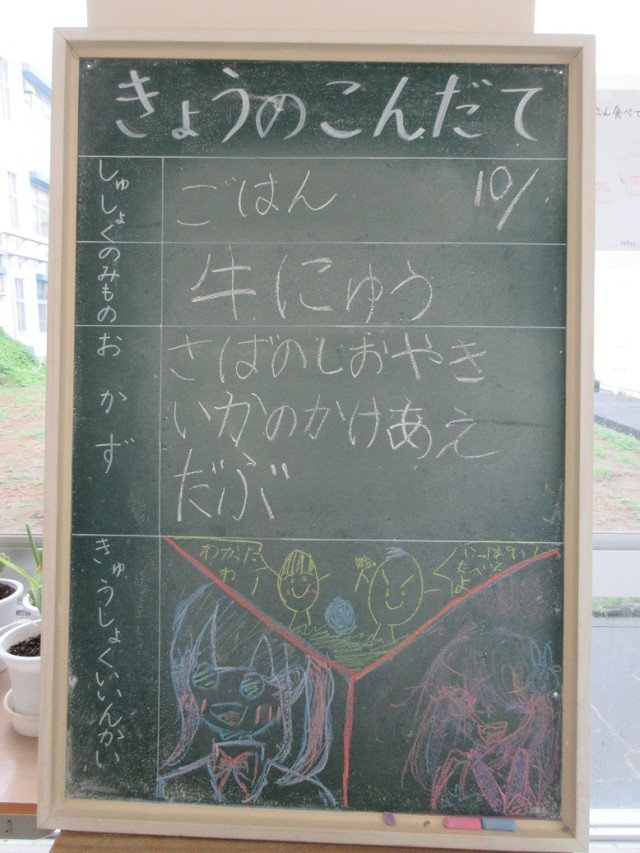 きょうのこんだて
しゅしょく
ごはん
10/
のみもの
牛にゅう
おかず
さばのしおやき
いかのかけあえ
だぶ
きゅうしょくいいんかい
わかったわー
さん食べて